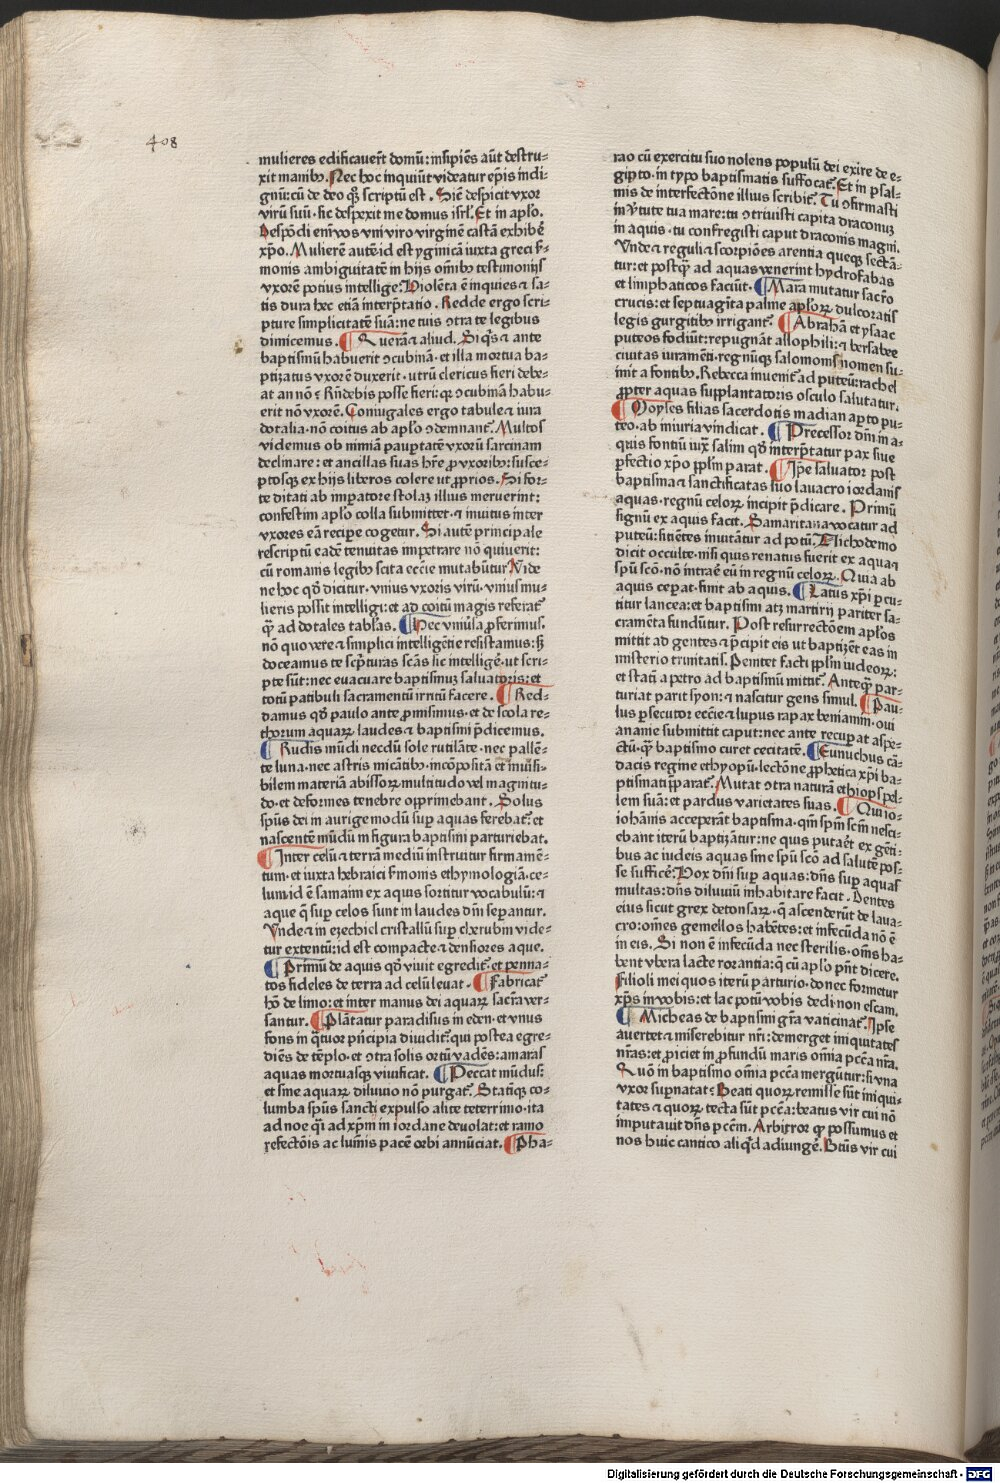 408
mulieres edificauer̄t domū: insipiēs aūt destru-
xit manibꝰ. Nec hoc inquiūt videatur ep̄is indi-
gnū: cū de deo qꝫ scriptū est. Sic̄ despicit vxor
virū suū. sic despexit me domus isrl̓. Et in ap̄lo.
Despōdi eni᷒ vos vni viro virginē castā exhibē
xp̄o. Mulierē autē id est ygunica iuxta greci ẜ-
monis ambiguitatē in hijs oībꝰ testimonijs
vxorē potius intellige. Violēta ē inquies ⁊ sa-
tis dura hec etiā interp̄tatio. Redde ergo scri-
pture simplicitatē suā: ne tuis ꝯtra te legibus
dimicemus. ¶ Querā ⁊ aliud. Siq̓s ⁊ ante
baptismū habuerit ꝯcubinā. et illa mortua ba-
ptizatus vxorē duxerit. vtrū clericus fieri debe-
at an nō? Rn̄debis posse fieri: qꝛ ꝯcubinā habu-
erit nō vxorē. Coniugales ergo tabule ⁊ iura
dotalia. nō coitus ab ap̄lo ꝯdemnant᷒. Multos
videmus ob nimiā paup̄tatē vxorū sarcinam
declinare: et ancillas suas hr̄e ꝓ vxoribꝰ: susce-
ptosqꝫ ex hijs liberos colere ut ꝓprios. Si for-
te ditati ab impatore stolaꝫ illius meruerint:
confestim ap̄lo colla submittet. ⁊ inuitus inter
vxores eā recipe cogetur. Si autē principale
rescriptū eadē tenuitas impetrare nō quiuerit:
cū romanis legibꝰ scita ecc̄ie mutabūtur. Vide
ne hoc qd̓ dicitur. vnius vxoris virū. vniusmu-
lieris possit intelligi: et ad coitū magis referat᷒
q̄ꝫ ad dotales tabl̓as. ¶ Hec vniūsa ꝓferimus.
nō quo vere ⁊ simplici intelligētie resistamus: ẜꝫ
doceamus te sc̄pturas sc̄as sic intelligē. ut scri-
pte sūt: nec euacuare baptismuꝫ saluatoris: et
totū patibuli sacramentū irritū facere. ¶ Red-
damus qd̓ paulo ante ꝓmisimus. et de scola re-
thorum aquaꝝ laudes ⁊ baptismi p̄dicemus.
¶ Rudis mūdi necdū sole rutilāte. nec pallē-
te luna. nec astris micātibꝰ. incōpositā et inuisi-
bilem materiā abissoꝝ multitudo vel magnitu-
do. et deformes tenebre opprimebant. Solus
spūs dei in aurige modū sup aquas ferebat᷒: et
nascentē mūdū in figura baptismi parturiebat.
¶ Inter celū ⁊ terrā mediū instruitur firmamē-
tum. et iuxta hebraici ẜmonis ethymologiā. ce-
lum. id ē samaim ex aquis sortitur vocabulū: ⁊
aque q̄ sup celos sunt in laudes dn̄i sepantur.
Vnde ⁊ in ezechiel cristallū sup cherubin vide-
tur extentū: id est compacte ⁊ densiores aque.
¶ Primū de aquis qd̓ viuit egredit᷒. et penna-
tos fideles de terra ad celū leuat. ¶ Fabricat᷒
hō de limo: et inter manus dei aquaꝝ sacr̄a ver-
santur. ¶ Plātatur paradisus in eden. et vnus
fons in q̓tuor p̄ncipia diuidit᷒. qui postea egre-
diēs de tēplo. et ꝯtra solis ortū vadēs: amaras
aquas mortuasqꝫ viuificat. ¶ Peccat mūdus:
et sine aquaꝝ diluuio nō purgat᷒. Statiqꝫ co-
lumba spūs sancti expulso alite teterrimo. ita
ad noe q̓i ad xp̄m in iordane deuolat: et ramo
refectōis ac lumīs pacē orbi annūciat. ¶ Pha-
rao cū exercitu suo nolens populū dei exire de e-
gipto. in typo baptismatis suffocat᷒. Et in psal-
mis de interfectōne illius scribit᷒. Tu ꝯfirmasti
in v̓tute tua mare: tu ꝯtriuisti capita draconuꝫ
in aquis. tu confregisti caput draconis magni.
Vnde ⁊ reguli ⁊ scorpiōes arentia queqꝫ sectā-
tur: et postq̄ꝫ ad aquas venerint hydrofabas
et limphaticos faciūt. ¶ Mara mutatur sacr̄o
crucis: et septuagīta palme ap̄loꝝ dulcoratis
legis gurgitibꝰ irrigant᷒. ¶ Abrahā et ysaac
puteos fodiūt: repugnāt allophili: ⁊ bersabee
ciuitas iuramēti. regnūqꝫ salomonis nomen su-
mit a fontibꝰ. Rebecca inuenit᷒ ad puteū: rachel
ꝓpter aquas supplantatoris osculo salutatur.
¶ Moyses filias sacerdotis madian apto pu-
teo. ab iniuria vindicat. ¶ Precessor dn̄i in a-
quis fontiū iuxͣ salim qd̓ interp̄tatur pax siue
ꝑfectio xp̄o ppl̓m parat. ¶ Ip̄e saluator post
baptisma ⁊ sanctificatas suo lauacro iordanis
aquas. regnū celoꝝ incipit p̄dicare. Primū
signū ex aquis facit. Samaritana vocatur ad
puteū: sitiētes inuitātur ad potū. Nichodemo
dicit occulte. nisi quis renatus fuerit ex aqua ⁊
spū scō. nō intrā eū in regnū celoꝝ. Quia ab
aquis cepat. finit ab aquis. ¶ Latus xp̄i ꝑcu-
titur lancea: et baptismi atqꝫ martirij pariter sa-
cramēta fundūtur. Post resurrectōem ap̄los
mittit ad gentes ⁊ p̄cipit eis ut baptizēt eas in
misterio trinitatis. Penitet facti ppl̓m iudeoꝝ:
et statī a petro ad baptismū mittit᷒. Anteq̄ꝫ par-
turiat parit syon: ⁊ nascitur gens simul. ¶ Pau-
lus ꝑsecutor ecc̄ie ⁊ lupus rapax beniamin. oui
ananie submittit caput: nec ante recupat aspe-
ctū. q̄ꝫ baptismo curet cecitatē. ¶ Eunuchus cā-
dacis regine ethyopū. lectōne ꝓphetica xp̄i ba-
ptismati pparat᷒. Mutat ꝯtra naturā ethiops pel-
lem suā: et pardus varietates suas. ¶ Qui io-
iohānis acceperāt baptisma. qm̄ spm̄ scm̄ nesci-
ebant iterū baptizātur: ne quis putaret ex gēti-
bus ac iudeis aquas sine spū scō ad salutē pos-
se sufficē. Vox dn̄i sup aquas: dn̄s sup aquas
multas: dn̄s diluuiū inhabitare facit. Dentes
eius sicut grex detonsaꝝ. q̄ ascenderūt de laua-
cro: om̄es gemellos habētes: et infecūda nō ē
in eis. Si non ē infecūda nec sterilis. om̄s ha-
bent vbera lacte rorantia: q̄ cū ap̄lo pn̄t dicere.
Filioli mei quos iterū parturio. donec formetur
xp̄s in vobis: et lac potū vobis dedi non escam.
¶ Micheas de baptismi gr̄a vaticinat᷒. Ipse
auertet ⁊ miserebitur nr̄i: demerget iniquitates
nr̄as: et ꝓiciet in ꝓfundū maris om̄ia pcc̄a nr̄a.
Quō in baptismo om̄ia pcc̄a mergūtur: si vna
vxor supnatat? Beati quoꝝ remisse sūt iniqui-
tates ⁊ quoꝝ tecta sūt pcc̄a: beatus vir cui nō
imputauit dn̄s pccm̄. Arbitror qꝙ possumus et
nos huic cantico aliq̓d adiungē. Btūs vir cui
Digitalisierung gefördert durch die Deutsche Forschungsgemeinschaft - DFG